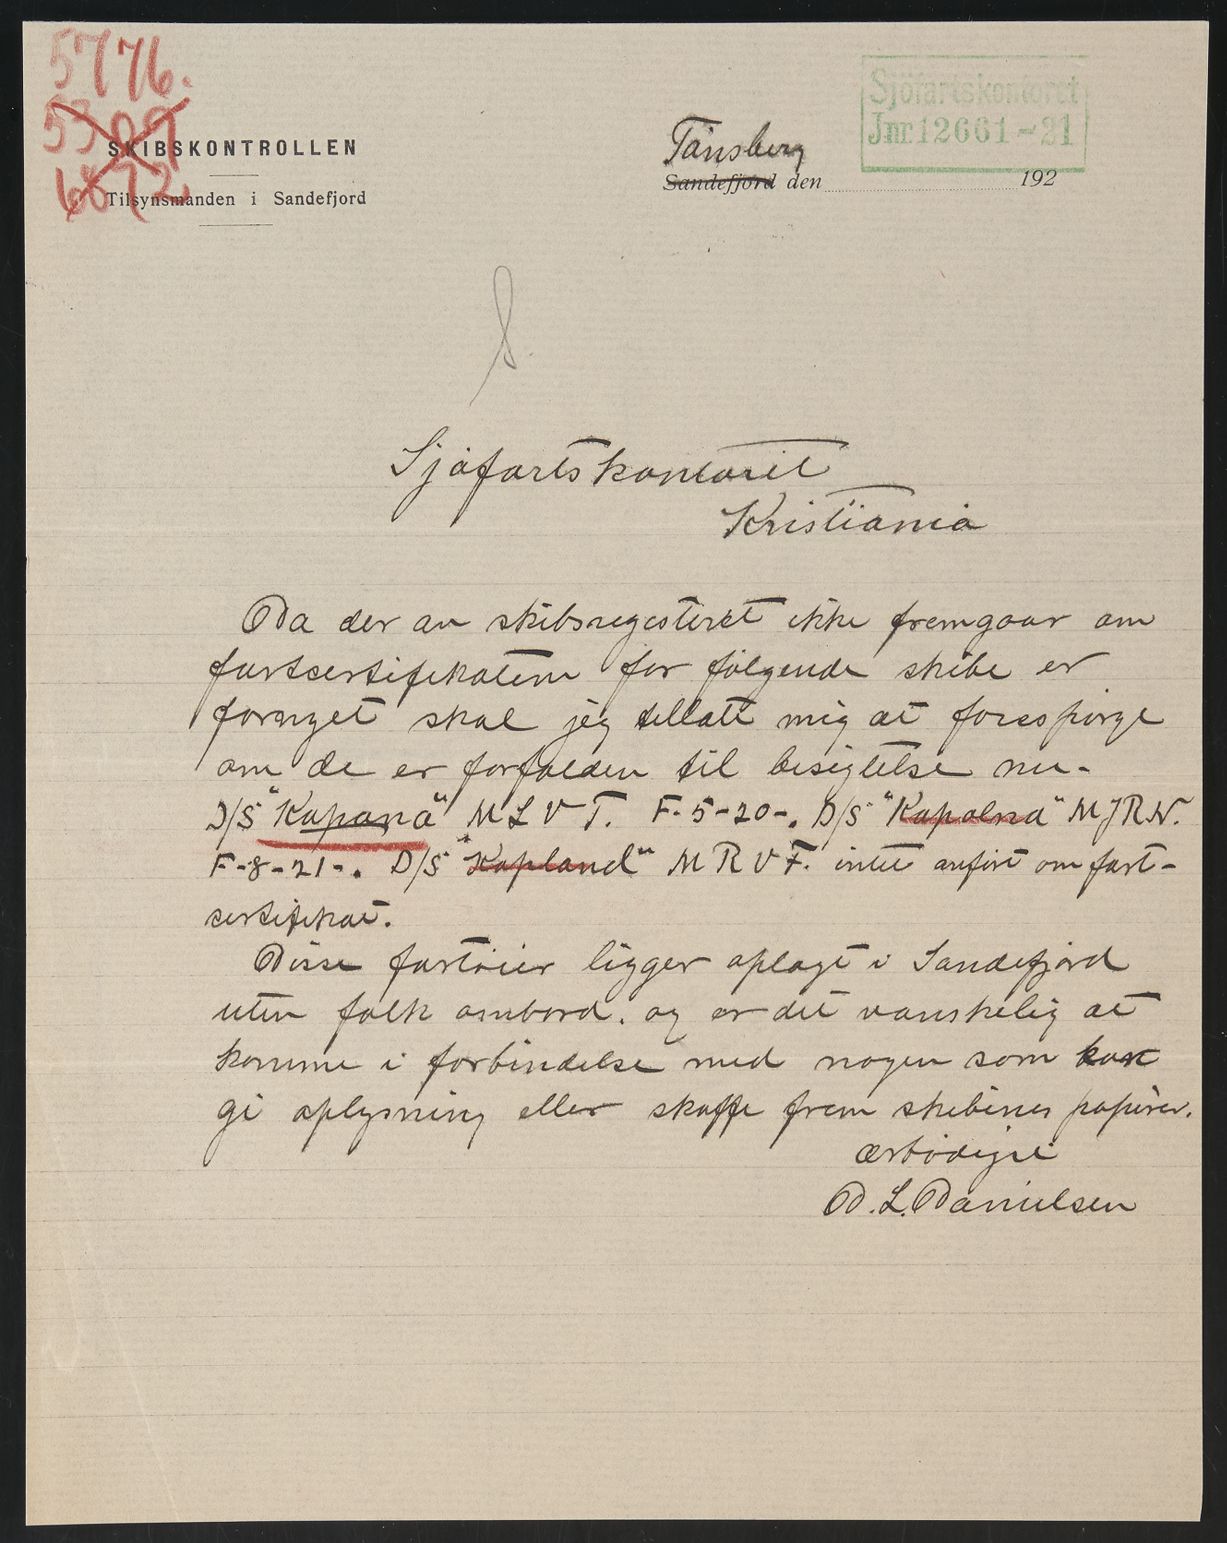 5776.
5399
6872.
SKIBSKONTROLLEN
Tilsynsmanden i Sandefjord
Sjöfartskontoret
Jnr. 12661-21
Tönsberg
Sandefjord den 192
Sjöfartskontoret
Kristiania
Da der av skibsregisteret ikke fremgaar om
fartsertifikatene for følgende skibe er
fornyet skal jeg tillate mig at forespørge
om de er forfalden til besigtelse nu-
D/S "Kapana" M L V T. F-5-20-. D/S "Kapolna" M J R N.
F-8-21-. D/S "Kapland" M R V F. intet anført om fart-
sertifikat.
Disse fartøier ligger oplagt i Sandefjord
uten folk ombord. og er det vanskelig at
komme i forbindelse med nogen som kan
gi oplysning eller skaffe frem skibenes papirer.
ærbødigst
D. L. Danielsen